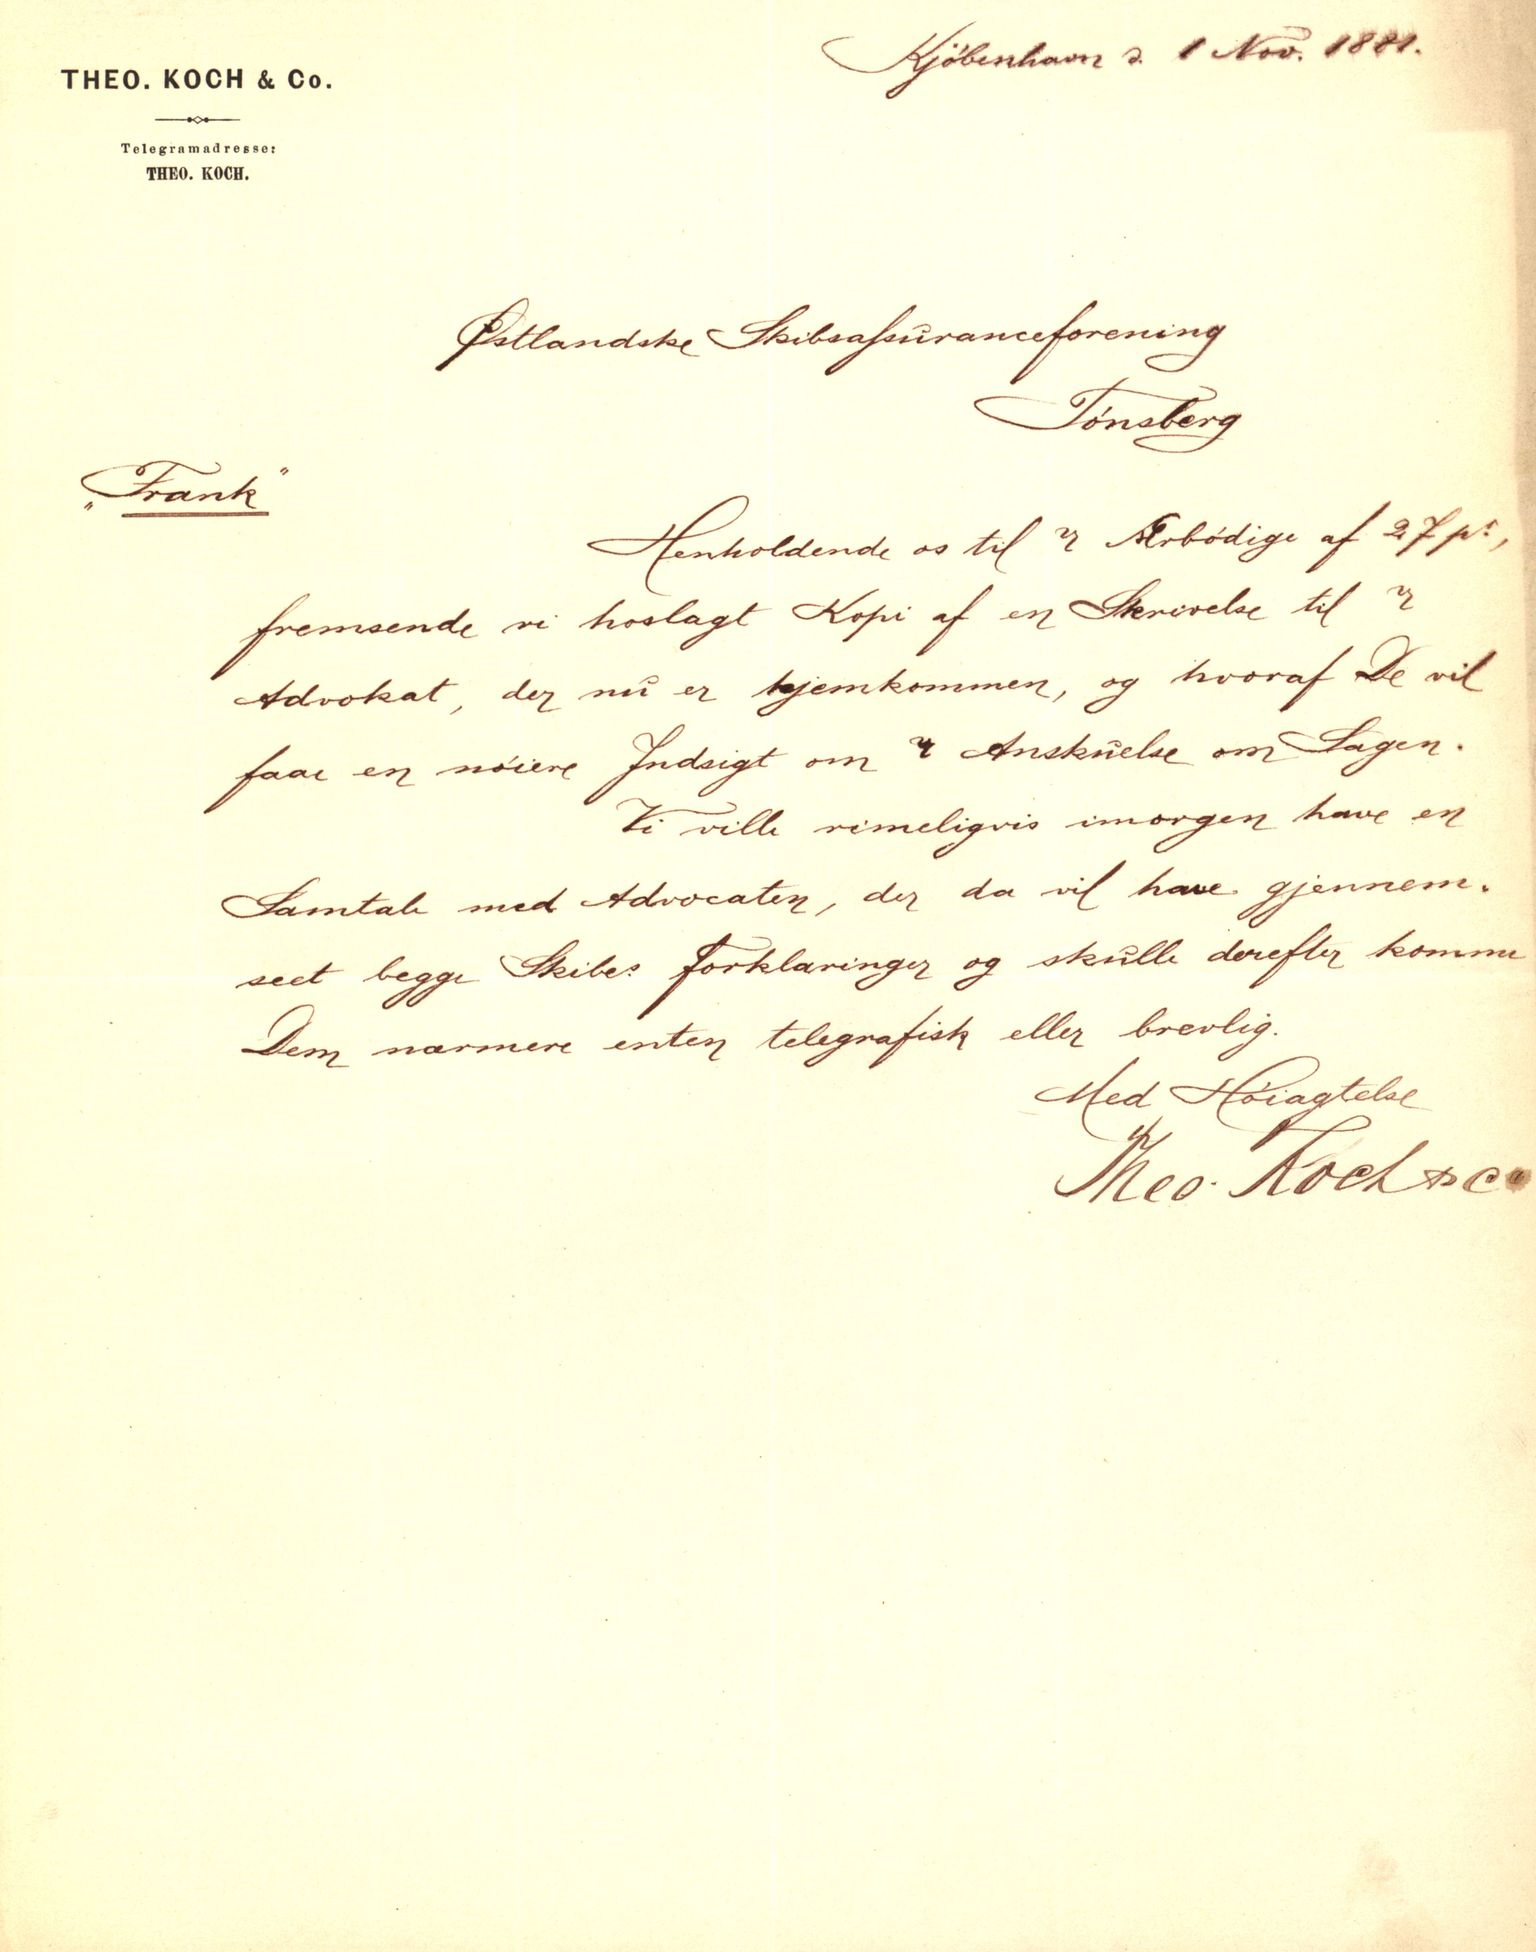 THEO. KOCH & Co.
Telegramadresse:
THEO. KOCH.
Kjöbenhavn d. 1 Nov. 1881.
Østlandske Skibsassuranceforening
Tönsberg
„Frank"
Henholdende os til Ærbödige af 27 ps,
fremsende vi hoslagt Kopi af en Skrivelse til
Advokat, der nu er hjemkommen, og hvoraf De vil
faae en nöiere Indsigt om Anskuelse om Sagen.
Vi ville rimeligvis imorgen have en
Samtale med Advocaten, der da vil have gjennem-
seet begge Skibes Forklaringer og skulle derefter komme
Dem nærmere enten telegrafisk eller brevlig.
Med Höiagtelse
Theo. Koch & Co